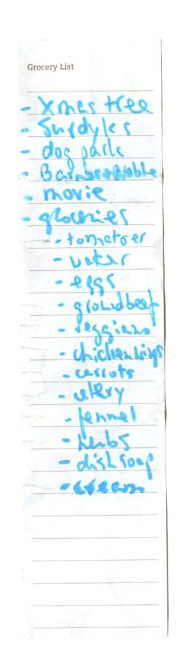 Grocery List
- Xmas tree
- Surdyks
- dog park
- Barnes + Noble
- movie
- groceries
- tomatoes
- water
- eggs
- ground beef
- chicken wings
- carrots
- celery
- fennel
- herbs
- dish soap
- cream